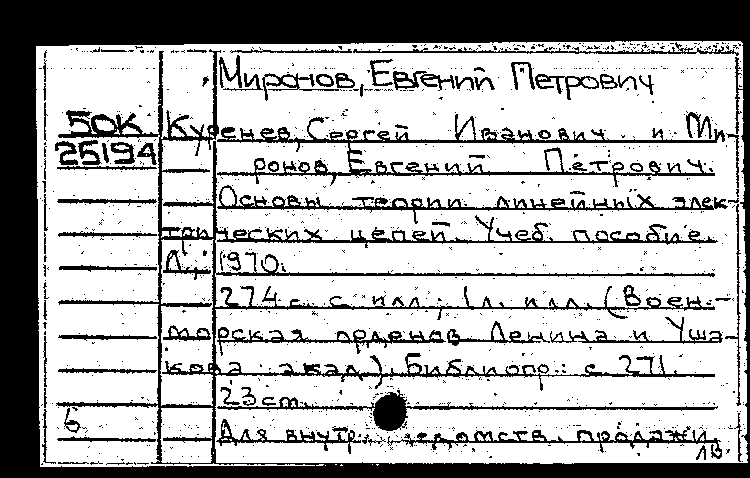 Миронов, Евгений Петрович
50К Куренев, Сергей Иванович и Ми-
25194 ронов, Евгений Петрович.
Основы теории линейных элек-
трических цепей. Учеб. пособие.
Л., 1970.
274 с. с илл.; 1 л. илл. (Воен.-
морская орденов Ленина и Уша-
кова акад.). Библиогр.: с. 271.
23 см.
6 Для внутр. ведомств. продажи.